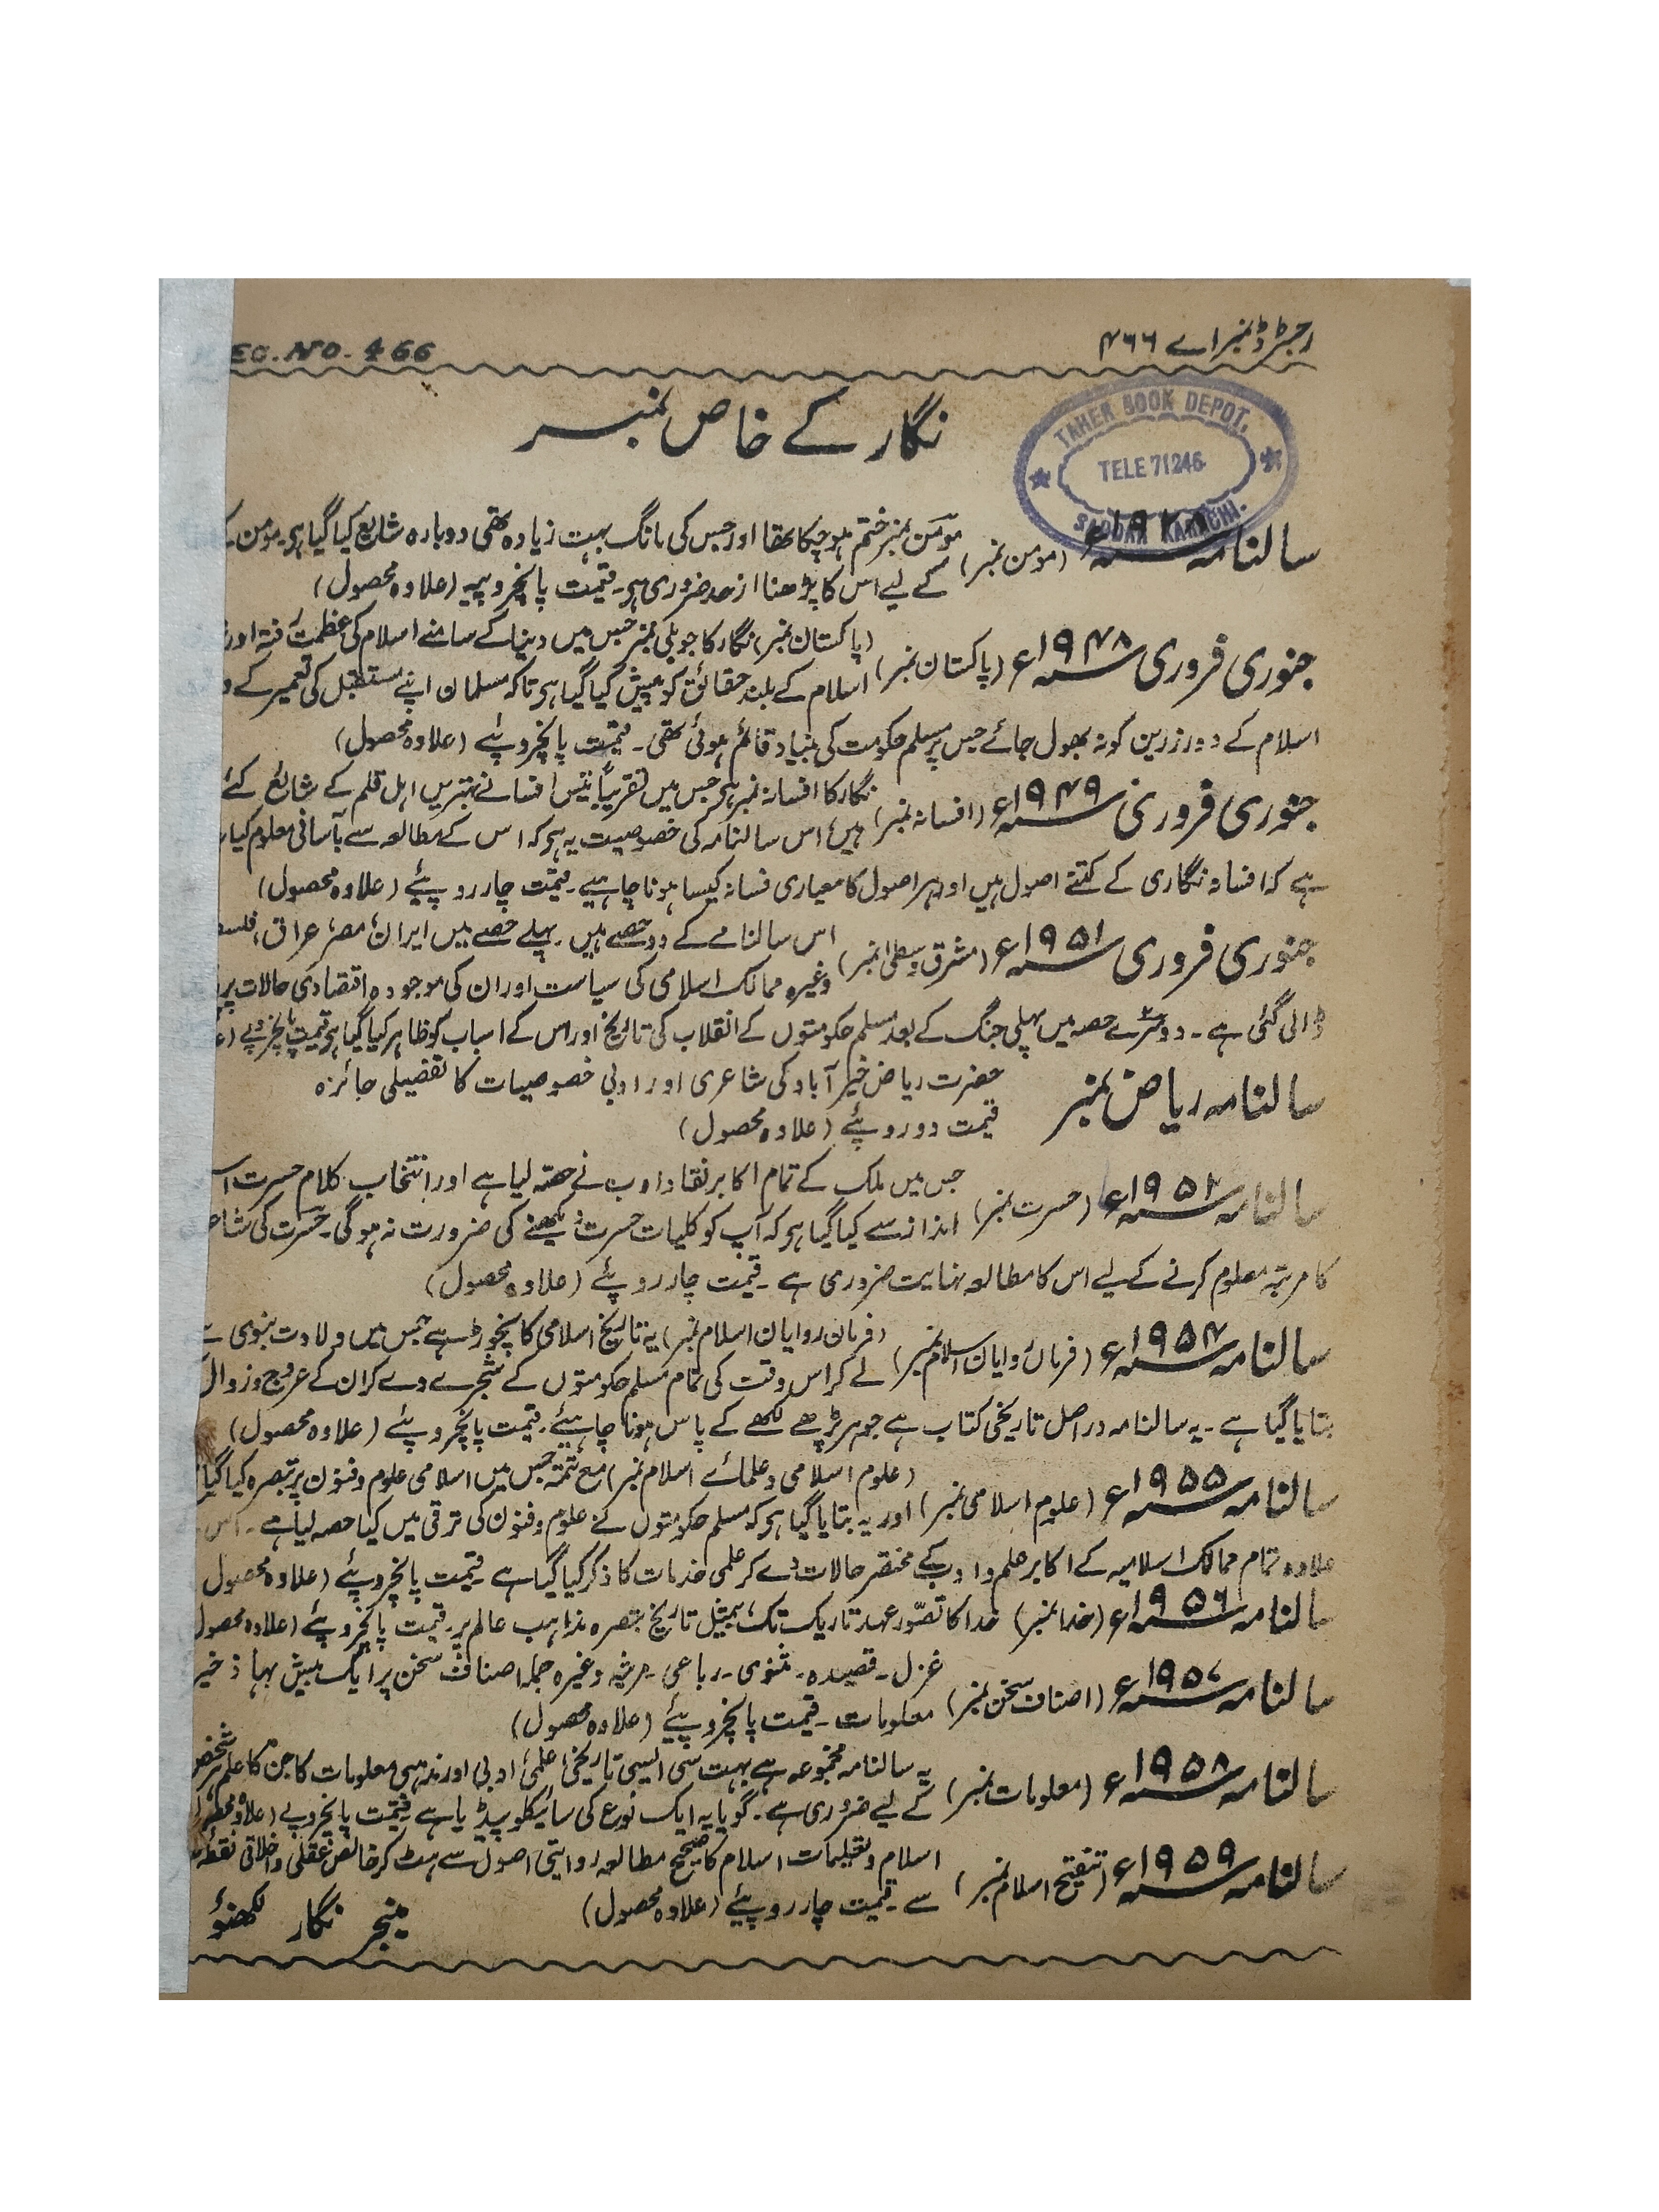 رجسٹرڈ نمبر اے ۴۶۶
EG. NO. 466
نگار کے خاص نمبر
TAHER BOOK DEPOT.
TELE 71246
SADDAR KARACHI.
سالنامہ (مومن نمبر) مومن نمبر ختم ہوچکا تھا اور جس کی مانگ بہت زیادہ تھی دوبارہ شایع کیا گیا ہو۔ مومن
کے لیے اس کا پڑھنا از حد ضروری ہو۔ قیمت پانچروپیہ (علاوہ محصول)
جنوری فروری ۱۹۴۸ء (پاکستان نمبر) (پاکستان نمبر) نگار کا جوبلی نمبر جس میں دنیا کے سامنے اسلام کی عظمت رفتہ اور
اسلام کے بلند حقائق کو پیش کیا گیا ہو تاکہ مسلمان اپنے مستقبل کی تعمیر کے و
اسلام کے دور زرین کو نہ بھول جائے جس پر مسلم حکومت کی بنیاد قائم ہوئی تھی۔ قیمت پانچروپئے (علاوہ محصول)
جنوری فروری ۱۹۴۹ء (افسانہ نمبر) نگار کا افسانہ نمبر ہو جس میں تقریباً تیس افسانے بہترین اہل قلم کے شائع کئے
ہیں، اس سالنامہ کی خصوصیت یہ ہو کہ اس کے مطالعہ سے بآسانی معلوم کیا
ہے کہ افسانہ نگاری کے کتنے اصول ہیں اور ہر اصول کا معیاری فسانہ کیسا ہونا چاہیے۔ قیمت چار روپئے (علاوہ محصول)
جنوری فروری ۱۹۵۱ء (مشرق وسطیٰ نمبر) اس سالنامے کے دو حصے ہیں۔ پہلے حصے میں ایران، مصر، عراق، فلسط
وغیرہ ممالک اسلامی کی سیاست اور ان کی موجودہ اقتصادی حالات پر
ڈالی گئی ہے۔ دوسرے حصہ میں پہلی جنگ کے بعد مسلم حکومتوں کے انقلاب کی تاریخ اور اس کے اسباب کو ظاہر کیا گیا ہو قیمت پانچروپے (ع
سالنامہ ریاض نمبر حضرت ریاض خیر آباد کی شاعری اور ادبی خصوصیات کا تفصیلی جائزہ
قیمت دو روپئے (علاوہ محصول)
سالنامہ ۱۹۵۲ء (حسرت نمبر) جس میں ملک کے تمام اکابر نقاد ادب نے حصہ لیا ہے اور انتخاب کلام حسرت ا
انداز سے کیا گیا ہو کہ آپ کو کلیات حسرت دیکھنے کی ضرورت نہ ہوگی۔ حسرت کی شاع
کا مرتبہ معلوم کرنے کے لیے اس کا مطالعہ نہایت ضروری ہے۔ قیمت چار روپئے (علاوہ محصول)
سالنامہ ۱۹۵۴ء (فرماں روایان اسلام نمبر) (فرمان روایان اسلام نمبر) یہ تاریخ اسلامی کا نچوڑ ہے جس میں ولادت نبوی سے
لے کر اس وقت کی تمام مسلم حکومتوں کے شجرے دے کر ان کے عروج و زوال
بتایا گیا ہے۔ یہ سالنامہ دراصل تاریخی کتاب ہے جو ہر پڑھے لکھے کے پاس ہونا چاہیئے۔ قیمت پانچروپئے (علاوہ محصول)
سالنامہ ۱۹۵۵ء (علوم اسلامی نمبر) (علوم اسلامی و علمائے اسلام نمبر) مع تتمہ جس میں اسلامی علوم و فنون پر تبصرہ کیا گیا
اور یہ بتایا گیا ہو کہ مسلم حکومتوں نے علوم و فنون کی ترقی میں کیا حصہ لیا ہے۔ اس
علاوہ تمام ممالک اسلامیہ کے اکابر علم و ادب کے مختصر حالات دے کر علمی خدمات کا ذکر کیا گیا ہے قیمت پانچروپئے (علاوہ محصول
سالنامہ ۱۹۵۶ء (خدا نمبر) خدا کا تصور عہد تاریک تک، بمثیل تاریخ تبصرہ مذاہب عالم پر۔ قیمت پانچروپئے (علاوہ محصول
سالنامہ ۱۹۵۷ء (اصناف سخن نمبر) غزل۔ قصیدہ۔ مثنوی۔ رباعی۔ مرثیہ وغیرہ جملہ اصناف سخن پر ایک بیش بہا ذخیر
معلومات۔ قیمت پانچروپئے (علاوہ محصول)
سالنامہ ۱۹۵۸ء (معلومات نمبر) یہ سالنامہ مجموعہ ہے بہت سی ایسی تاریخی، علمی، ادبی اور مذہبی معلومات کا جن کا علم ہر شخص
کے لیے ضروری ہے۔ گویا یہ ایک نوع کی سائیکلو پیڈیا ہے قیمت پانچروپے (علاوہ محصول
سالنامہ ۱۹۵۹ء (تنقیح اسلام نمبر) اسلام و تعلیمات اسلام کا صحیح مطالعہ روایتی اصول سے ہٹ کر خالص عقلی و اخلاقی نقطہ
سے۔ قیمت چار روپئے (علاوہ محصول)
منیجر نگار لکھنؤ